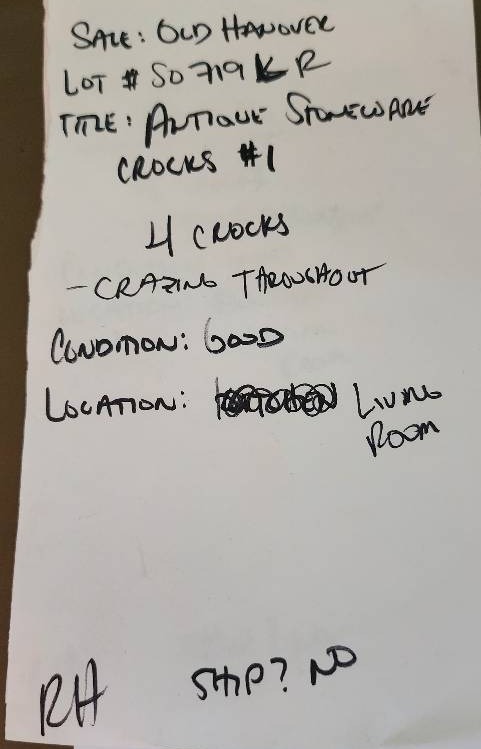 SALE: OLD HANOVER
LOT # SO719 R
TITLE: ANTIQUE STONEWARE
CROCKS #1
4 CROCKS
- CRAZING THROUGHOUT
CONDITION: GOOD
LOCATION: LIVING
ROOM
RH SHIP? NO